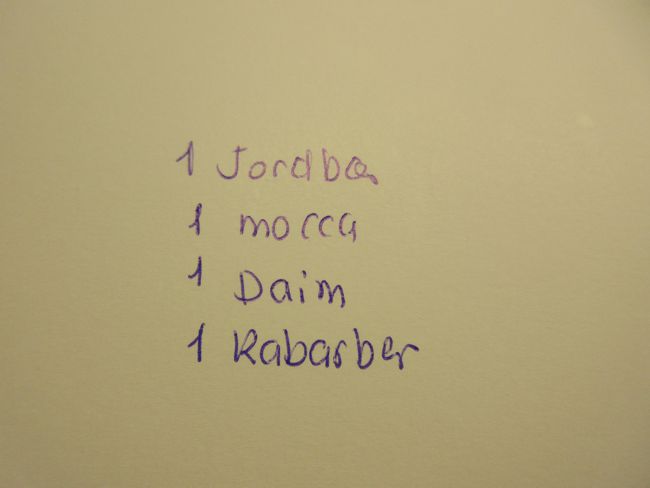 1 Jordbær
1 mocca
1 Daim
1 Rabarber